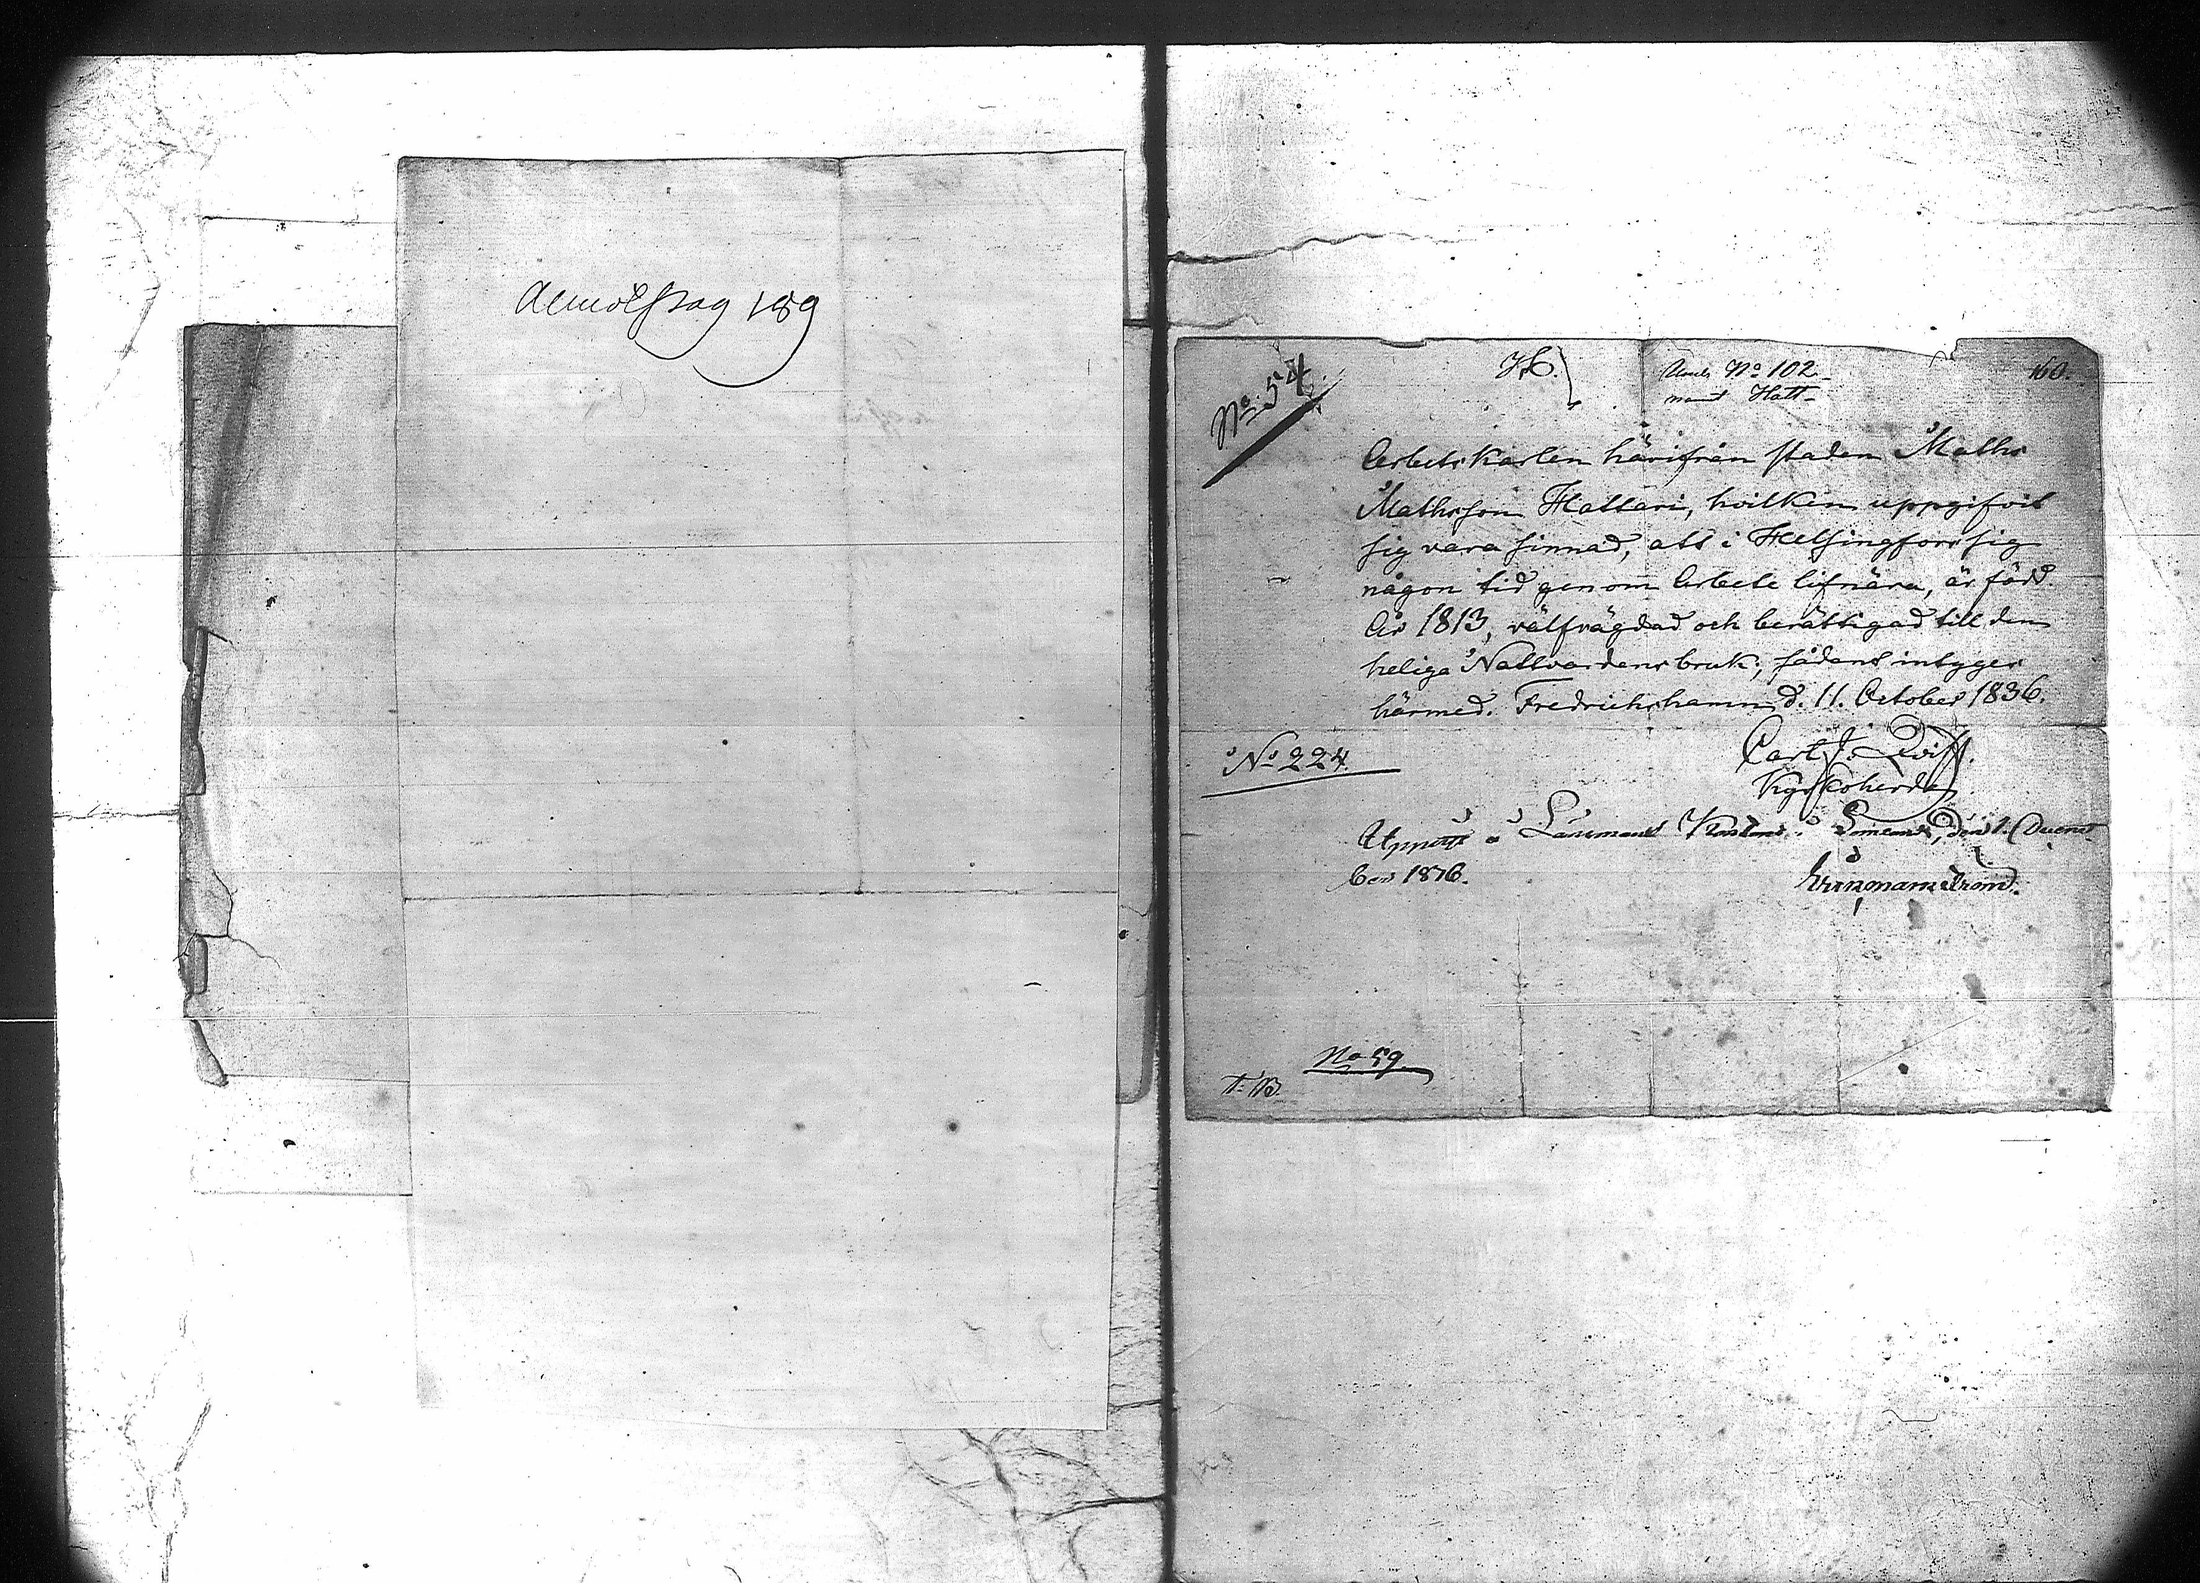 189
No. 54.
No 102
Hatt
160.
Arbets Karlen härifrån staden Maths
Mathsson Hattari, hvilken uppgifvit
sig vara sinnad, att i Helsingfors sig
någon tid genom Arbete lifnära, är född
År 1813, välfrägdad och berättigad till den
heliga Nattvardens bruk; sådant intyges
härmed. Fredrichshamn d. 11. October 1836.
Carl J.
Kyrkoherde
No 224.
Länsmans den 1.
ber 1836.
No 59.